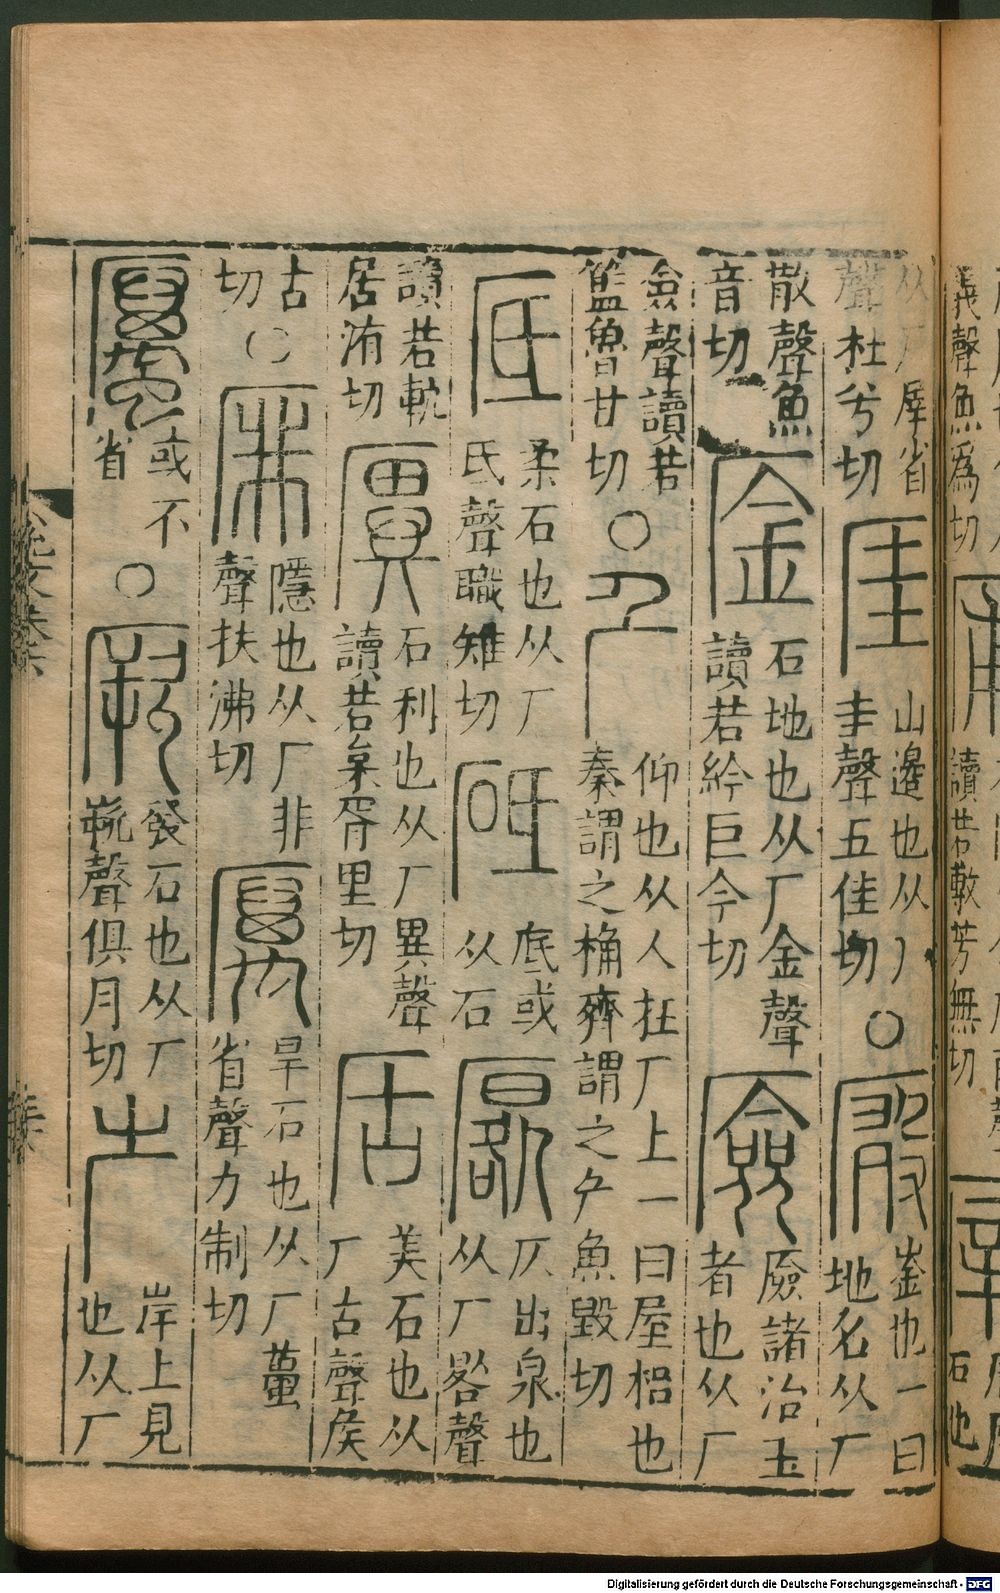 義聲魚爲切
讀若敷芳無切
石也
从厂屖省聲杜兮切 厓 山邊也从厂圭聲五佳切 〇 厰 崟也一曰地名从厂
散聲魚音切 石地也从厂金聲讀若紟巨今切 厱 厱諸治玉者也从厂
僉聲讀若籃魯甘切 〇 厃 仰也从人在厂上一曰屋梠也秦謂之桷齊謂之厃魚毀切
厎 柔石也从厂氐聲職雉切 砥 底或从石 厬 仄出泉也从厂晷聲
讀若軌居洧切 石利也从厂異聲讀若枲胥里切 美石也从厂古聲矦
古切 〇 厞 隱也从厂非聲扶沸切 厲 旱石也从厂蠆省聲力制切
或不省 〇 厥 發石也从厂欮聲俱月切 岸上見也从厂
說文卷六
Digitalisierung gefördert durch die Deutsche Forschungsgemeinschaft - DFG